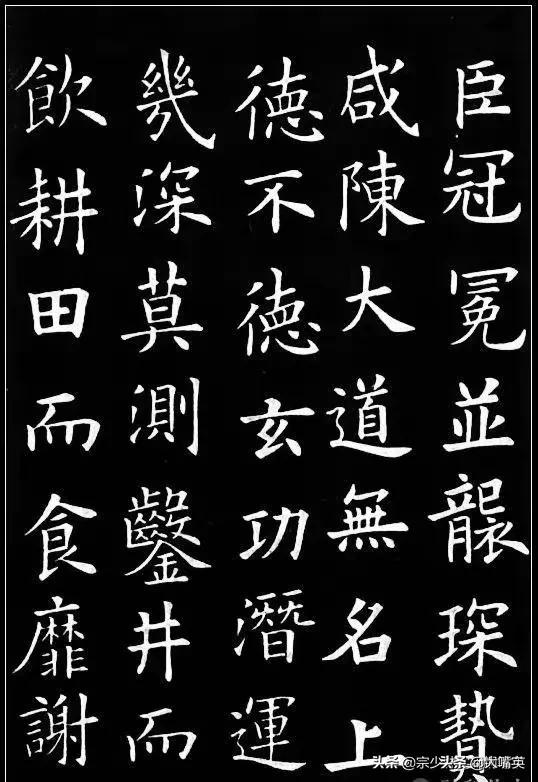 臣冠冕並襲琛贄
咸陳大道無名上
德不德玄功潛運
幾深莫測鑿井而
飲耕田而食靡謝
头条 @宗少头条